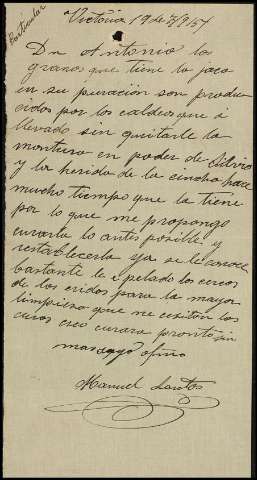 Particular
Victoria 19 de 7/915
Dn Antonio los
granos que tiene la jaca
en su puración son produ
cidos por los caldeos que á
llevado sin quitarle la
montura en poder de Silvio
y la herida de la cincha hace
mucho tiempo que la tiene
por lo que me propongo
curarla lo antes posible y
restablecerla ya se le conoce
bastante le e pelado los
de los oidos para la mayor
limpieza que necesitan las
curas creo curara pronto sin
mas
Manuel Santos